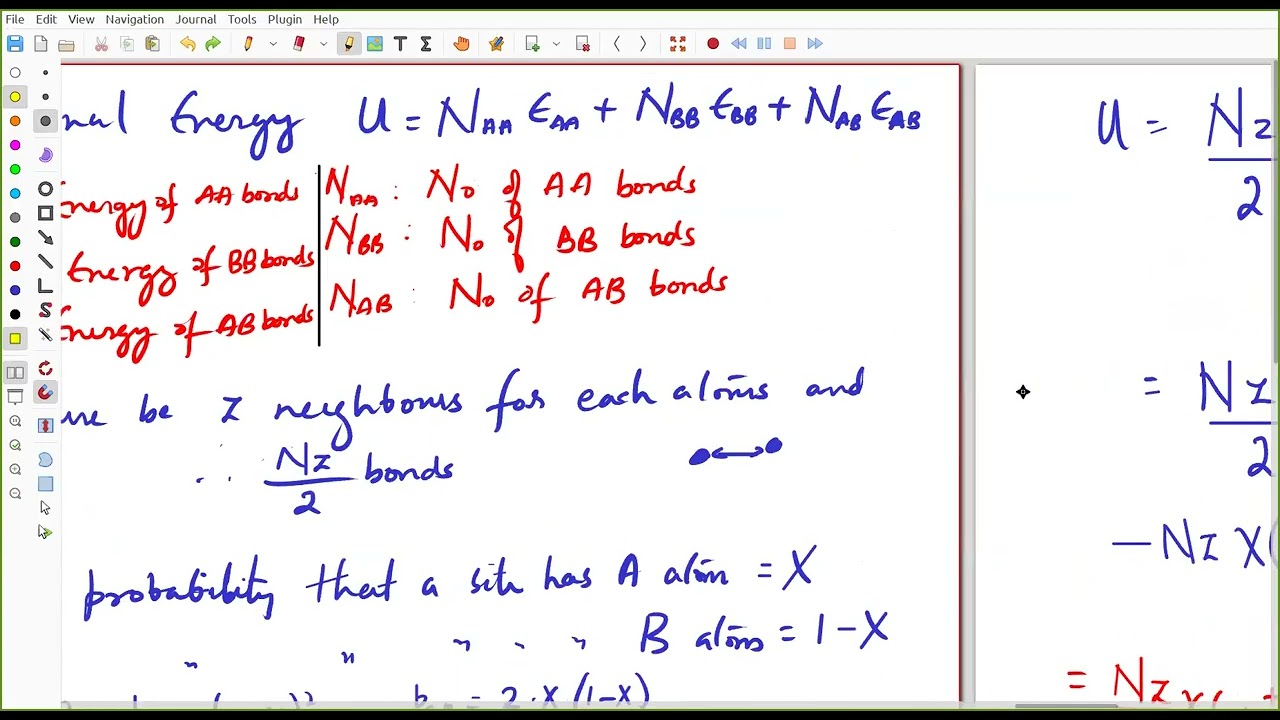 File Edit View Navigation Journal Tools Plugin Help
nal Energy U = N_AA ε_AA + N_BB ε_BB + N_AB ε_AB
Energy of AA bonds
Energy of BB bonds
Energy of AB bonds
N_AA : No of AA bonds
N_BB : No of BB bonds
N_AB : No of AB bonds
be z neighbours for each atoms and
∴ Nz/2 bonds
probability that a site has A atom = X
" " " " " B atoms = 1-X
= 2·X(1-X)
U = Nz
2
= Nz
2
- Nz X(
= Nz